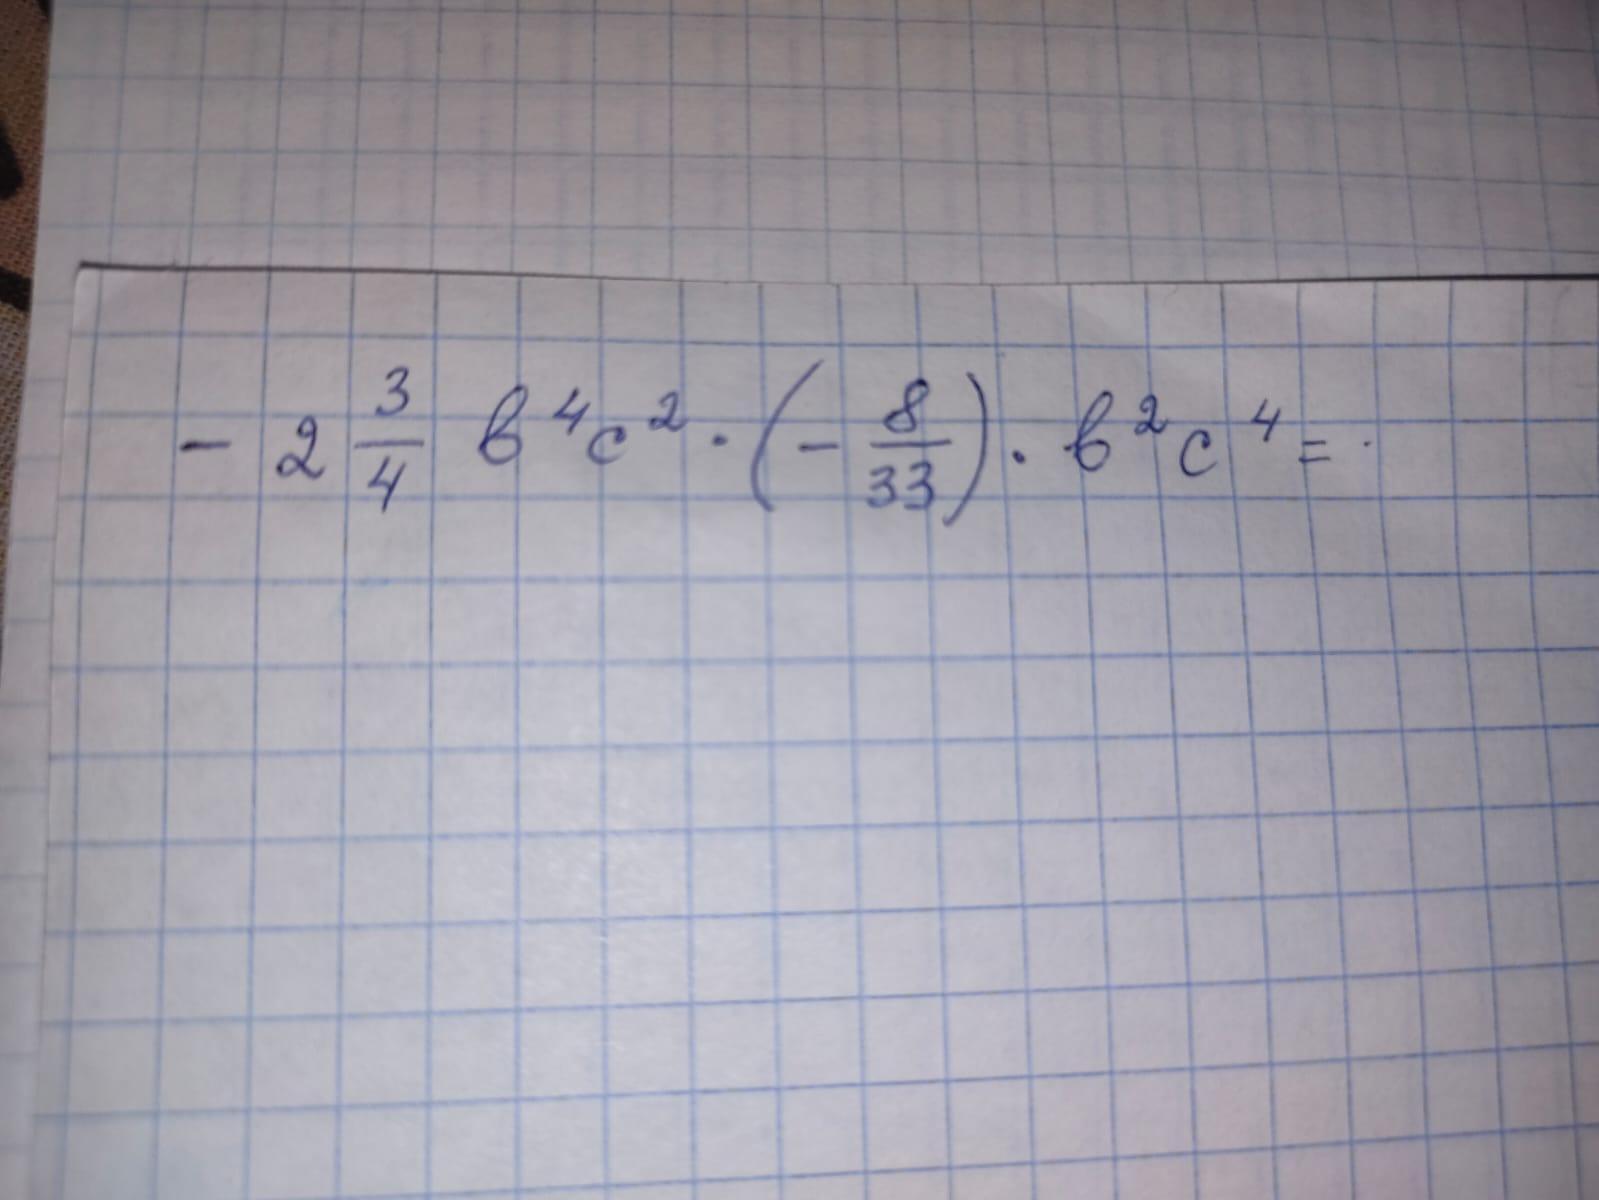 - 2 3/4 в⁴c² · (- 8/33) · в²c⁴ =